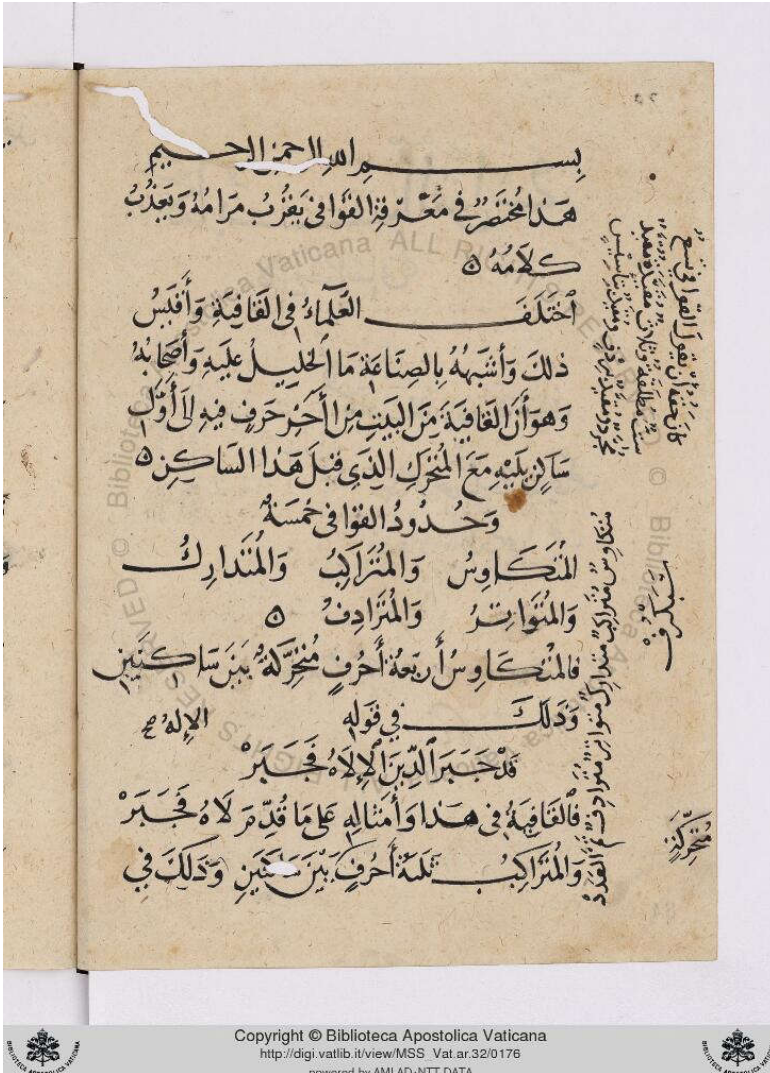 بِسْمِ اللهِ الرَّحمنِ الرَّحيم
هَذا مُختَصَرٌ في مَعْرِفَةِ القَوَافي يَقْرُبُ مَرَامُهُ وَيَعْذُبُ
كَلَامُهُ ۵
اَخْتَلَفَ العُلَمَاءُ في القَافِيَةِ وَأَقيَسُ
ذلِكَ وَأَشْبَهُهُ بِالصِنَاعَةِ مَا الخَلِيلُ عَلَيهِ وَأَصحَابُهُ
وَهوَ أَنَّ القَافِيَةَ مِنَ البَيتِ مِن أَخِرِ حَرفٍ فِيهِ الَى أَوَّلِ
سَاكِنٍ يَلِيهِ مَعَ المُتَحَرِكِ الذي قَبلَ هَذا السَاكِنِ ۵
وَحُدُودُ القَوَافي خَمسَةٌ
المُتَكَاوِسُ وَالمُتَرَاكِبُ وَالمُتَدَارِكُ
وَالمُتَوَاتِرُ وَالمُتَرَادِفُ ۵
فالمُتَكَاوِسُ أَربَعَةُ أَحرُفٍ مُتَحَرِّكَةٌ بَينَ سَاكِنَينِ
وَذَلِكَ في قَولِهِ الإِلهُ صح
قَدْ جَبَرَ الدِّينَ الإِلَاهُ فَجَبَرْ
فَالقَافِيَةُ في هَذا وَأَمثَالِهِ عَلَى مَا قُدِّمَ لَاهُ فَجَبَرْ
وَالمُتَرَاكِبُ ثَلثَةُ أَحرُفٍ بَينَ سَاكِنَينِ وَذَلكَ في
كانَ حقه أن يقول القوافي تسع
ستّ مطلقة وثلاث مقيدة مقيد
مجرد ومقيد بردف ومقيد بتاسيس
مُتكاوسٌ مُتراكبٌ متداركٌ متواترٌ مترادفٌ
سَبَكرف
مُتحَرِّكَة
Copyright © Biblioteca Apostolica Vaticana
http://digi.vatlib.it/view/MSS_Vat.ar.32/0176
powered by AMLAD-NTT DATA